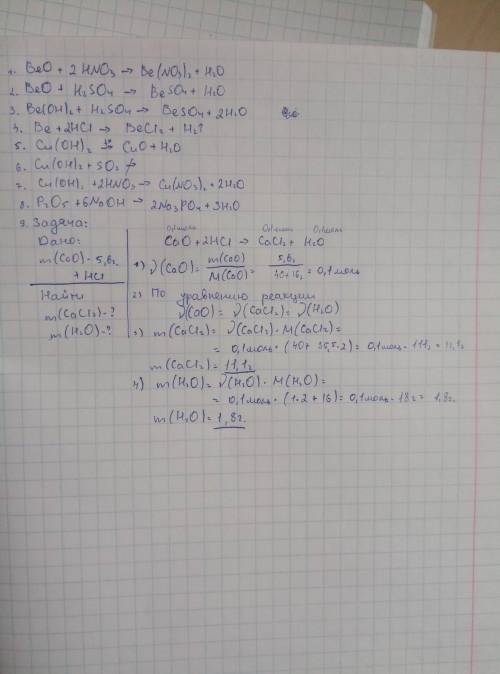 1. BeO + 2HNO3 → Be(NO3)2 + H2O
2. BeO + H2SO4 → BeSO4 + H2O
3. Be(OH)2 + H2SO4 → BeSO4 + 2H2O
4. Be + 2HCl → BeCl2 + H2↑
5. Cu(OH)2 → CuO + H2O
6. Cu(OH)2 + SO2 ↛
7. Cu(OH)2 + 2HNO3 → Cu(NO3)2 + 2H2O
8. P2O5 + 6NaOH → 2Na3PO4 + 3H2O
9. Задача:
Дано:
m(CaO) - 5,6г
+ HCl
Найти
m(CaCl2) - ?
m(H2O) - ?
0,1моль 0,1моль 0,1моль
CaO + 2HCl → CaCl2 + H2O
1) ν(CaO) = m(CaO)/M(CaO) = 5,6г/40+16г = 0,1моль
2) По уравнению реакции
ν(CaO) = ν(CaCl2) = ν(H2O)
3) m(CaCl2) = ν(CaCl2) · M(CaCl2) =
= 0,1моль · (40 + 35,5·2) = 0,1моль · 111г = 11,1г
m(CaCl2) = 11,1г
4) m(H2O) = ν(H2O) · M(H2O) =
= 0,1моль · (1·2 + 16) = 0,1моль · 18г = 1,8г.
m(H2O) = 1,8г.